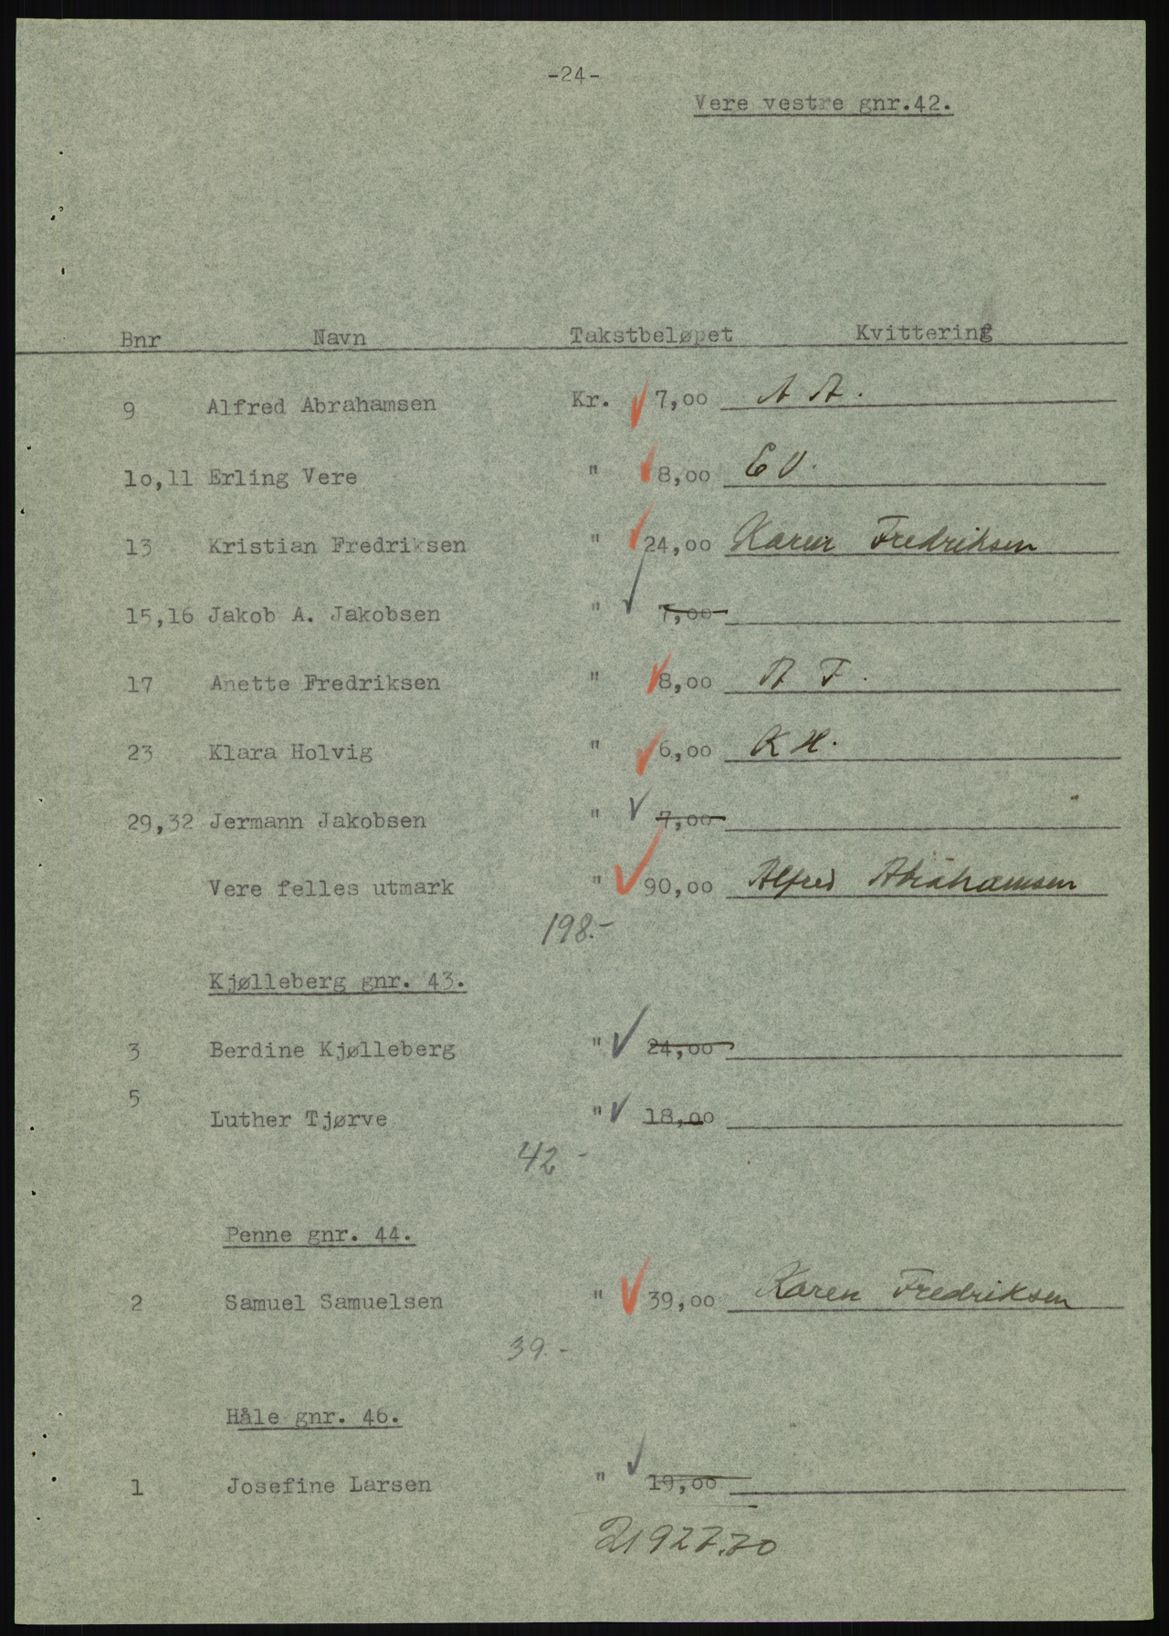 -24-
Vere vestre gnr.42.
Bnr Navn Takstbeløpet Kvittering
9 Alfred Abrahamsen Kr. 7,00 A A.
10,11 Erling Vere " 8,00 E V.
13 Kristian Fredriksen " 24,00 Karen Fredriksen
15,16 Jakob A. Jakobsen " 7,00
17 Anette Fredriksen " 8,00 A F.
23 Klara Holvig " 6,00 K H.
29,32 Jermann Jakobsen " 7,00
Vere felles utmark " 90,00 Alfred Abrahamsen
198.-
Kjølleberg gnr. 43.
3 Berdine Kjølleberg " 24,00
5
Luther Tjørve " 18,00
42 -
Penne gnr. 44.
2 Samuel Samuelsen " 39,00 Karen Fredriksen
39.-
Håle gnr. 46.
1 Josefine Larsen " 19,00